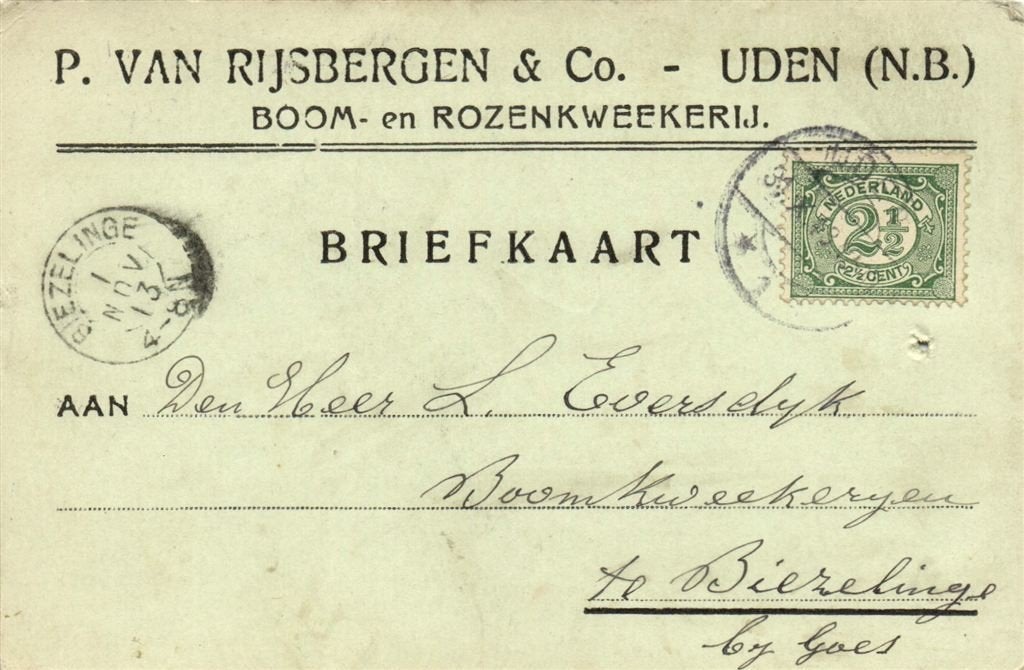 P. VAN RIJSBERGEN & Co. - UDEN (N.B.)
BOOM- en ROZENKWEEKERIJ.
NEDERLAND
2½
2½ CENT
BIEZELINGE
1
NOV
13
BRIEFKAART
AAN Den Heer L. Eversdyk
Boomkweekeryen
te Biezelinge
by Goes